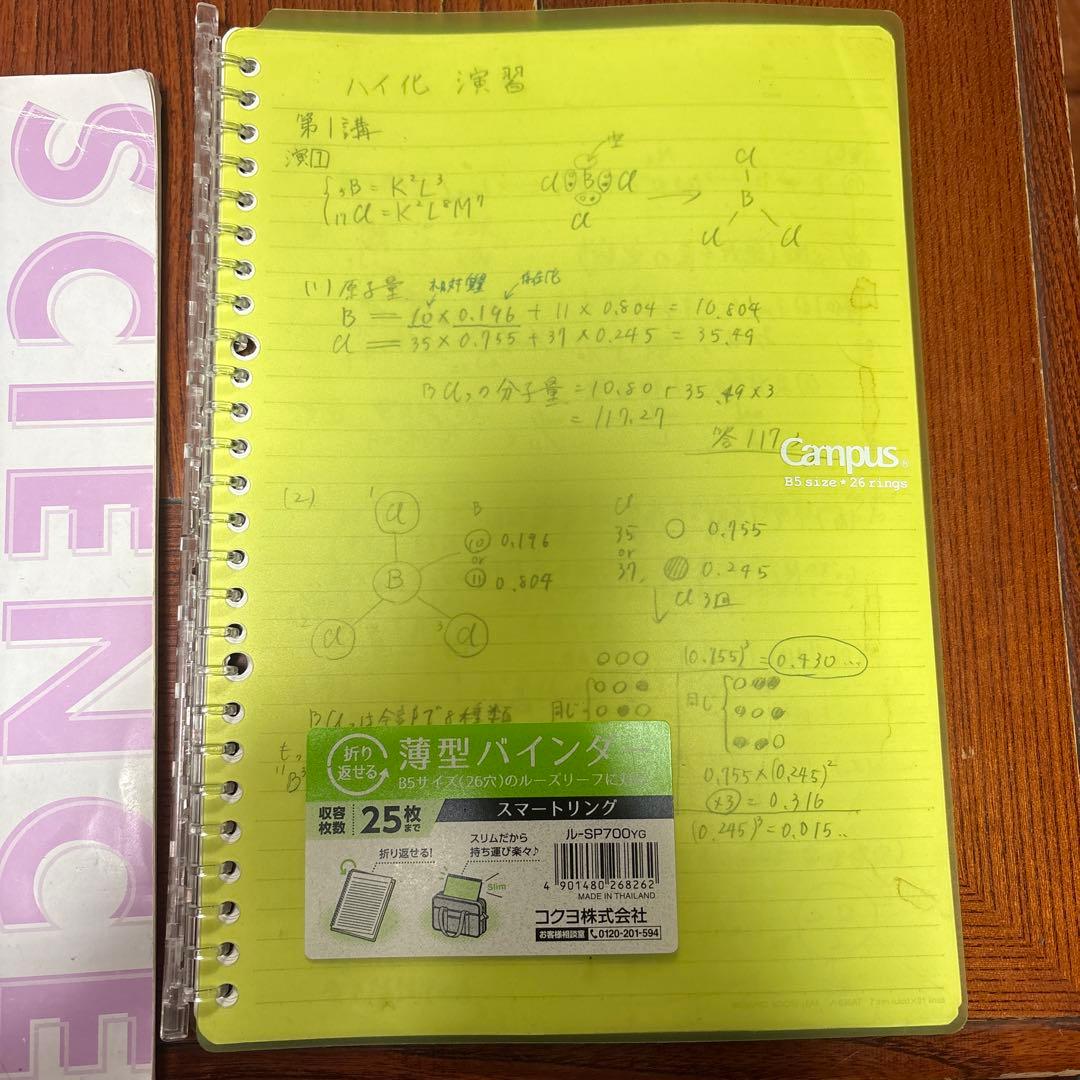 SCIENCE
ハイ化 演習
第1講
演1
₅B = K²L³
₁₇Cl = K²L⁸M⁷
空
Cl B Cl
Cl
Cl
B
Cl Cl
(1) 原子量 相対質量 存在比
B = 10×0.196 + 11×0.804 = 10.804
Cl = 35×0.755 + 37×0.245 = 35.49
BCl₃の分子量 = 10.80 + 35.49×3
= 117.27
答 117
Campus
B5 size * 26 rings
(2)
1 Cl
B
2 Cl
3 Cl
B
10 0.196
or
11 0.804
Cl
35 0.755
or
37 0.245
Cl 3コ
(0.755)³ = 0.430...
同じ
同じ
BCl₃は全部で8種類
0.755×(0.245)²
×3 = 0.316
(0.245)³ = 0.015..
折り返せる
薄型バインダー
B5サイズ(26穴)のルーズリーフに
スマートリング
収容枚数 25枚まで
ル-SP700YG
折り返せる!
スリムだから
持ち運び楽々♪
Slim
4 901480 268262
MADE IN THAILAND
コクヨ株式会社
お客様相談室 0120-201-594